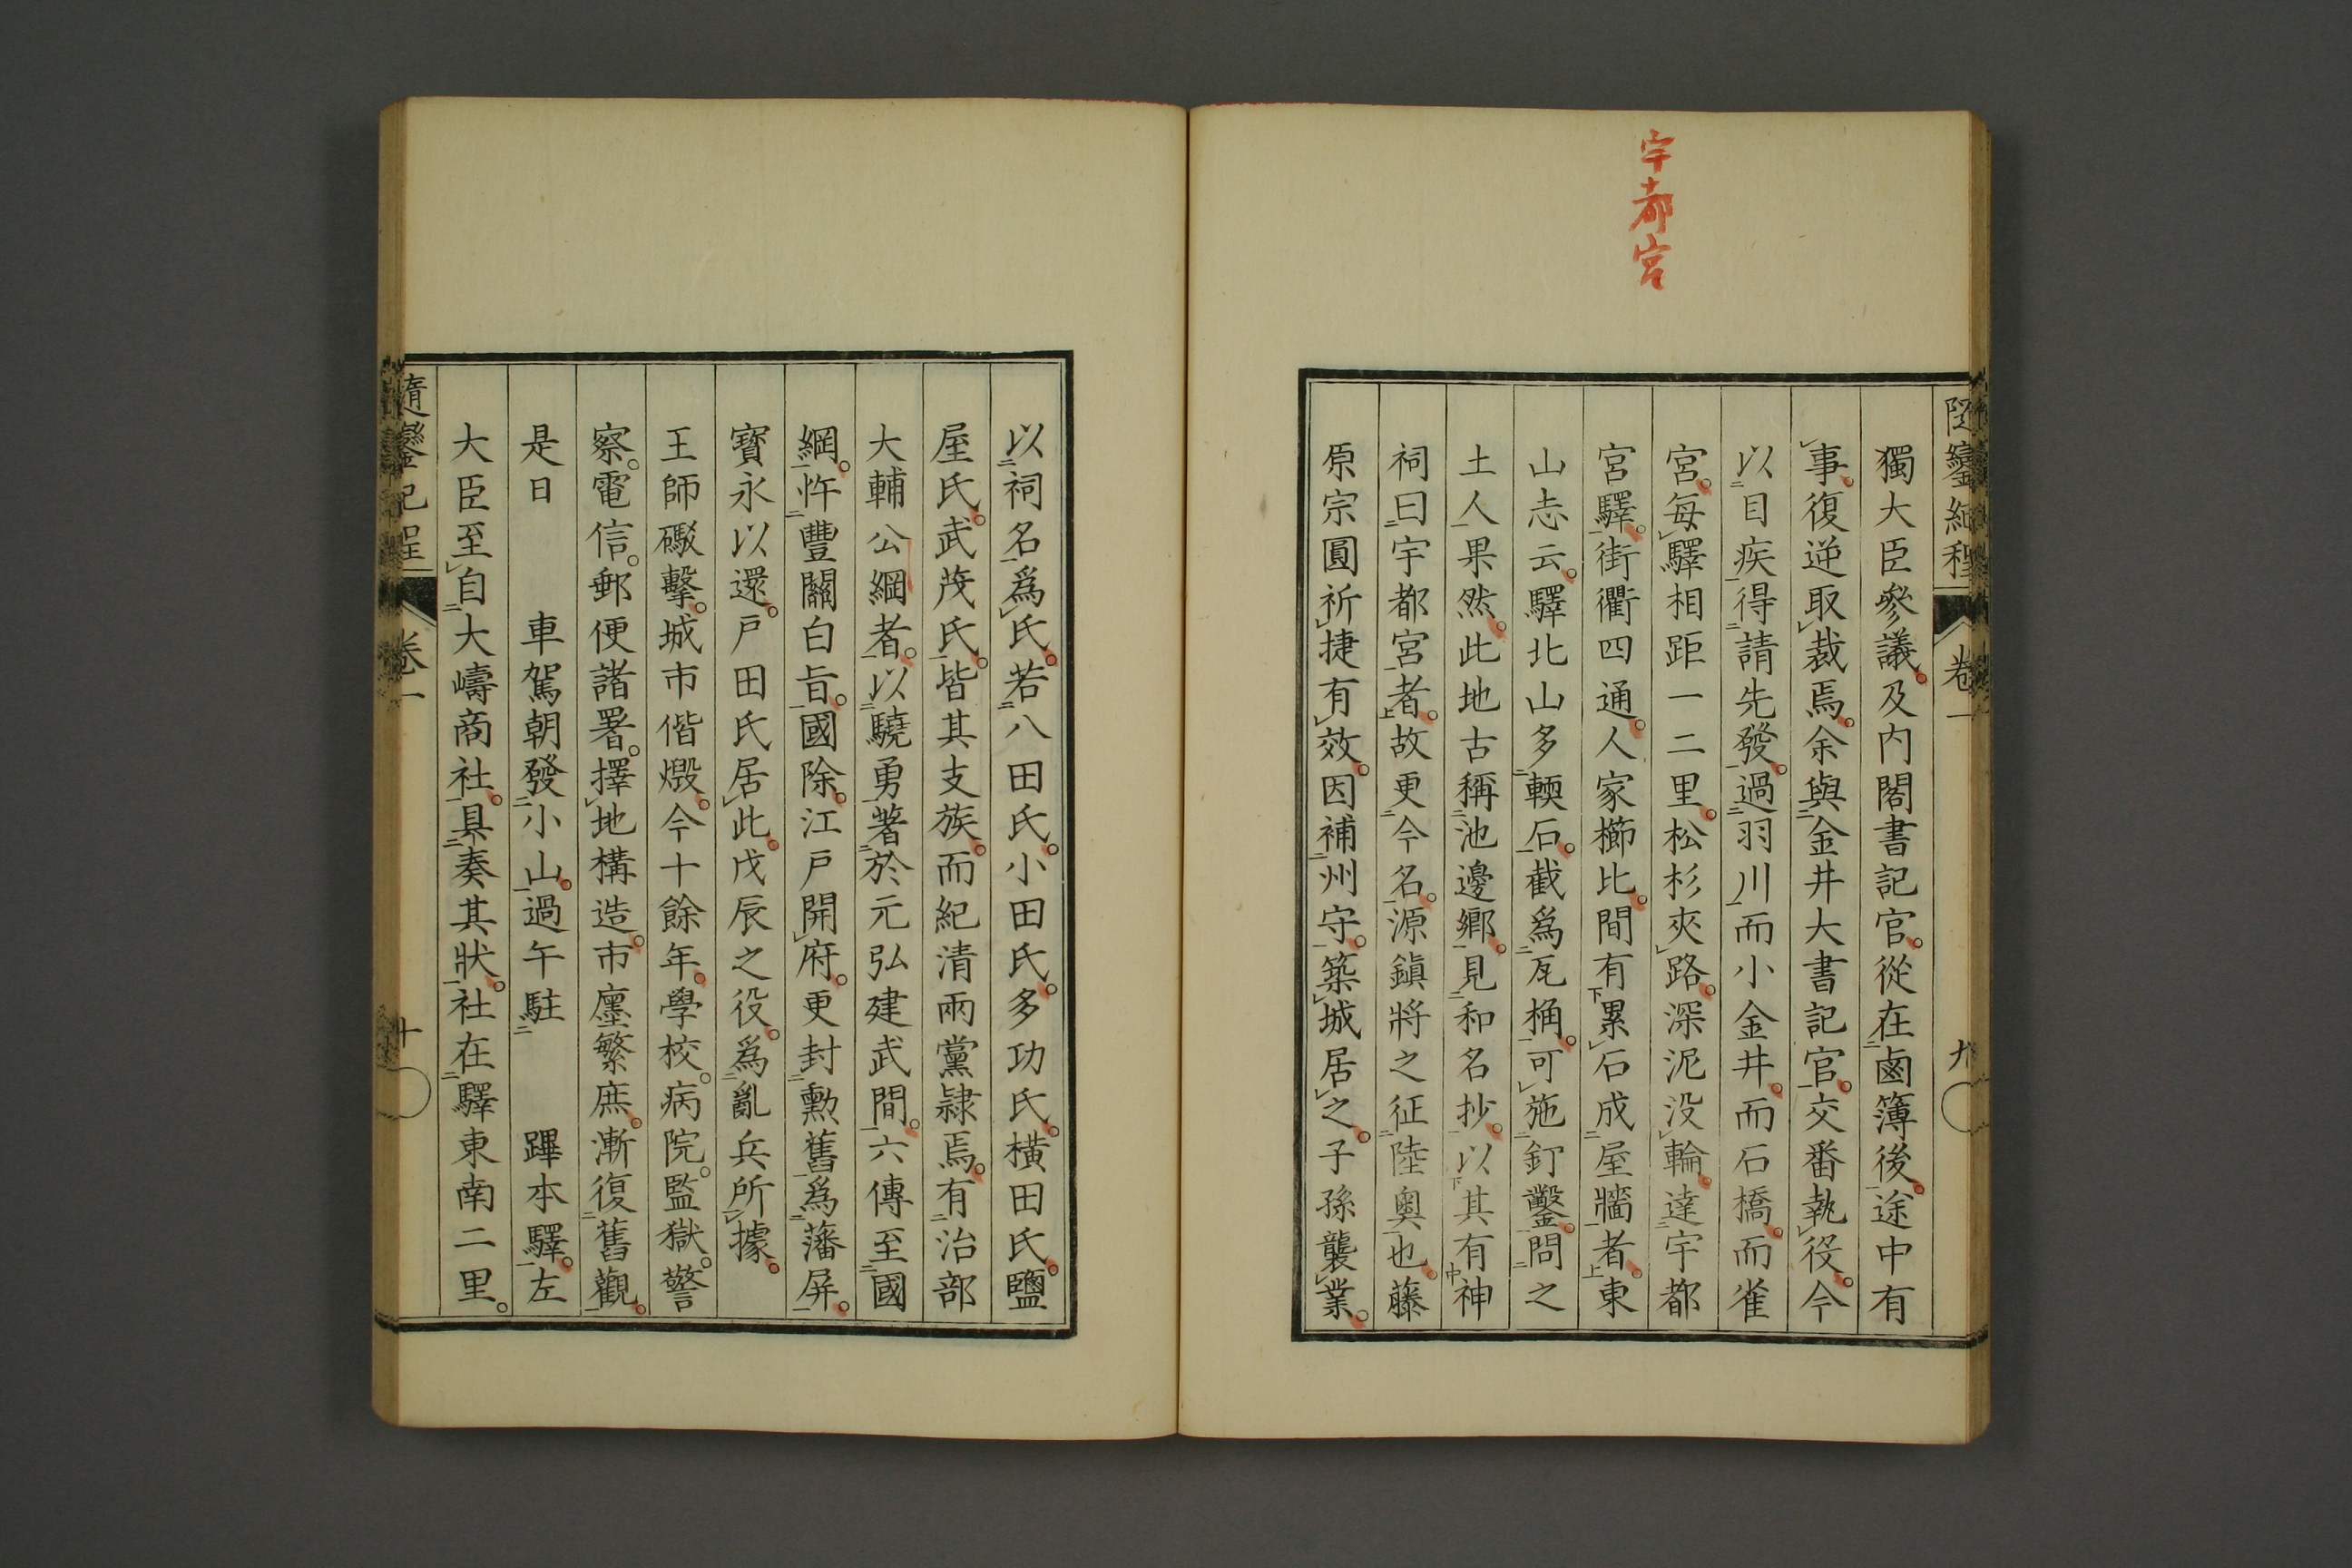 宇都宮
隨鑾紀程 卷一 九
獨大臣參議。及内閣書記官。從在鹵簿後。途中有
事。復逆取裁焉。余與金井大書記官。交番執役。今
以目疾得請先發。過羽川而小金井。而石橋。而雀
宮。每驛相距一二里。松杉夾路。深泥没輪。達宇都
宮驛。街衢四通。人家櫛比。間有累石成屋牆者。東
山志云。驛北山多輭石。截爲瓦桷。可施釘鑿。問之
土人果然。此地古稱池邊鄉。見和名抄。以其有神
祠曰宇都宮者。故更今名。源鎮將之征陸奧也。藤
原宗圓祈捷有效。因補州守。築城居之。子孫襲業。
以祠名爲氏。若八田氏。小田氏。多功氏。横田氏。鹽
屋氏。武茂氏。皆其支族。而紀清兩黨隷焉。有治部
大輔公綱者。以驍勇著於元弘建武間。六傳至國
綱。忤豐關白旨。國除。江戸開府。更封勳舊爲藩屏。
寶永以還。戸田氏居此。戊辰之役。爲亂兵所據。
王師礮擊。城市偕燬。今十餘年。學校。病院。監獄。警
察。電信。郵便諸署。擇地構造。市廛繁庶。漸復舊觀。
是日　車駕朝發小山。過午駐　蹕本驛。左
大臣至自大嶹商社。具奏其狀。社在驛東南二里。
隨鑾紀程 卷一 十